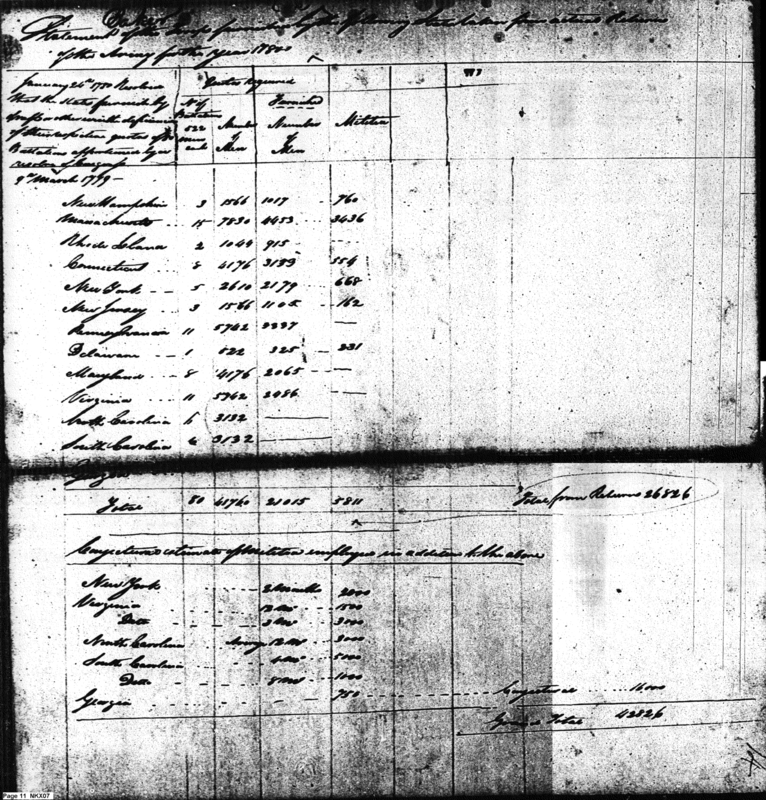 Statement of the Troops furnished by the following States taken from actual Returns
of the Army for the year 1780
January 24th 1780 Resolved
that the States furnish by
of their respective quotas of
Battalions apportioned by a
resolve of Congress
9th March 1779
Quotas required
No. of Battalions 522 men each
Number of Men
Furnished
Number of Men
Militia
New Hampshire 3 1566 1017 760
Massachusetts 15 7830 4453 3436
Rhode Island 2 1044 915
Connecticut 8 4176 3133 554
New York 5 2610 2179 668
New Jersey 3 1566 1105 162
Pennsylvania 11 5742 3337
Delaware 1 522 325 231
Maryland 8 4176 2065
Virginia 11 5742 2486
North Carolina 6 3132
South Carolina 6 3132
Total 80 41760 21015 5811 Total from Returns 26826
Conjectural estimate of Militia employed in addition to the above
New York 2 Months 2000
Virginia 12 do 1500
Ditto 3 do 3000
North Carolina Average 12 do 3000
South Carolina 4 do 5000
Ditto 8 do 1000
Georgia 750 Conjectural 16000
Grand Total 42826
Page 11 NKX07